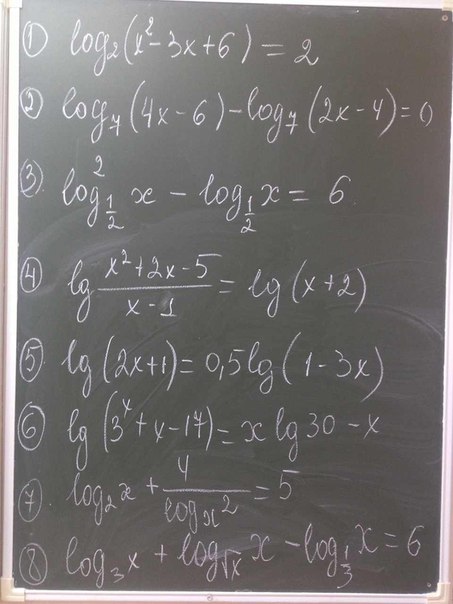 ① log₂(x² - 3x + 6) = 2
② log₇(4x - 6) - log₇(2x - 4) = 0
③ log²_{1/2} x - log_{1/2} x = 6
④ lg (x² + 2x - 5)/(x - 1) = lg(x + 2)
⑤ lg(2x + 1) = 0,5 lg(1 - 3x)
⑥ lg(3ˣ + x - 17) = x lg 30 - x
⑦ log₂ x + 4/(logₓ 2) = 5
⑧ log₃ x + log_{√x} x - log_{1/3} x = 6